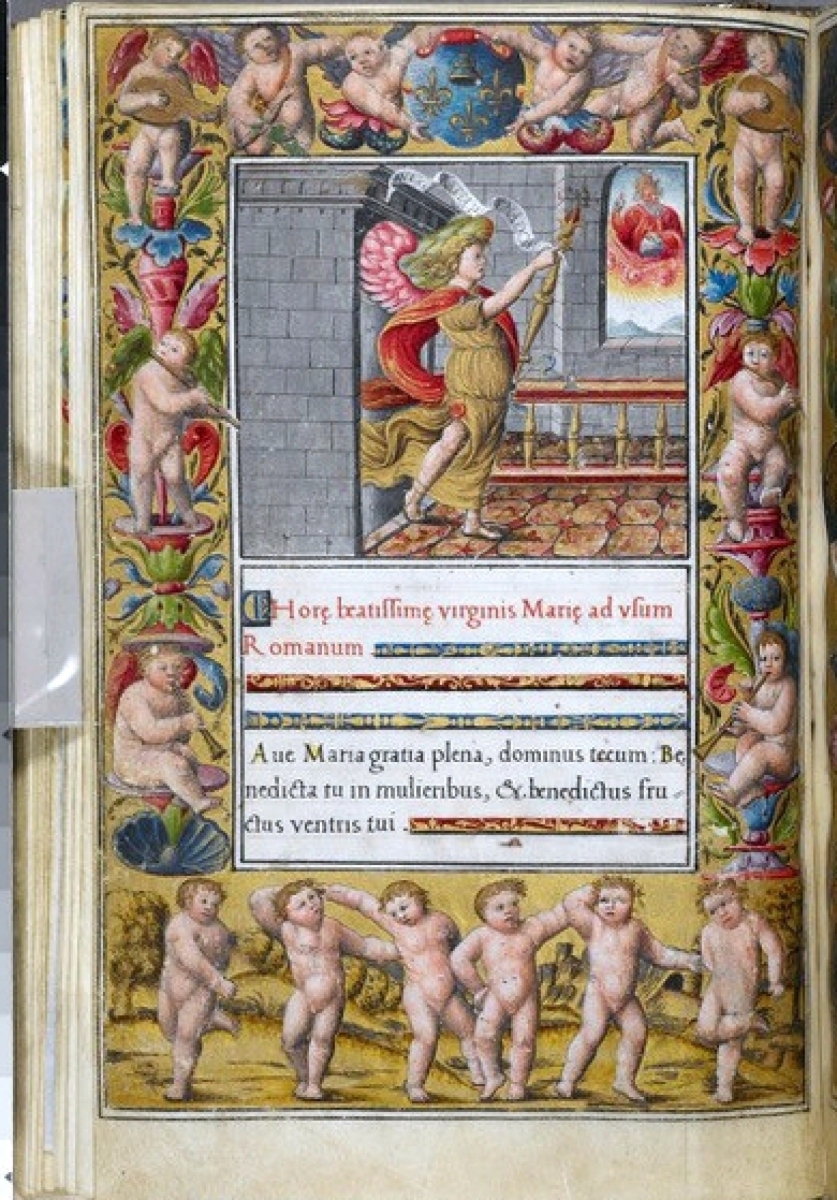 Horę beatissimę virginis Marię ad vsum
Romanum
Aue Maria gratia plena, dominus tecum: Be
nedicta tu in mulieribus, & benedictus fru-
ctus ventris tui.